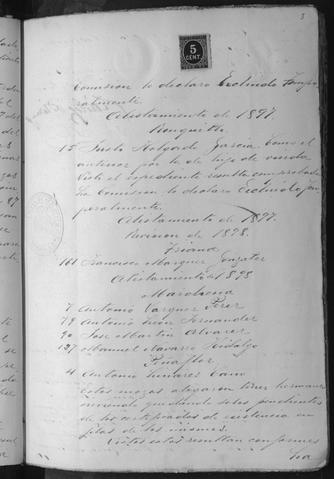 3
5
CENT.
Comision lo declara Excluido Temporalmente.
Alistamiento de 1897.
Ronquillo
15 Justo Holgado Garcia. Como el
anterior por lo de hijo de viuda
Visto el espediente resulta comprobada
La Comision lo declara Excluido tem
poralmente.
Alistamiento de 1897.
Revision de 1898.
Triana
161 Francisco Marquez
Alistamiento de 1898
Marchena
7 Antonio Vazquez Perez
79 Antonio Leon Fernandez
90 Jose Martin Alvarez
127 Manuel Navarro Hidalgo
Peñaflor
4 Antonio Linares Cano
Estos mozos alegaron tener hermanos
sirviendo quedando solo pendientes
de los certificados de existencia en
filas de los mismos.
Vistos estos resultan conformes
La